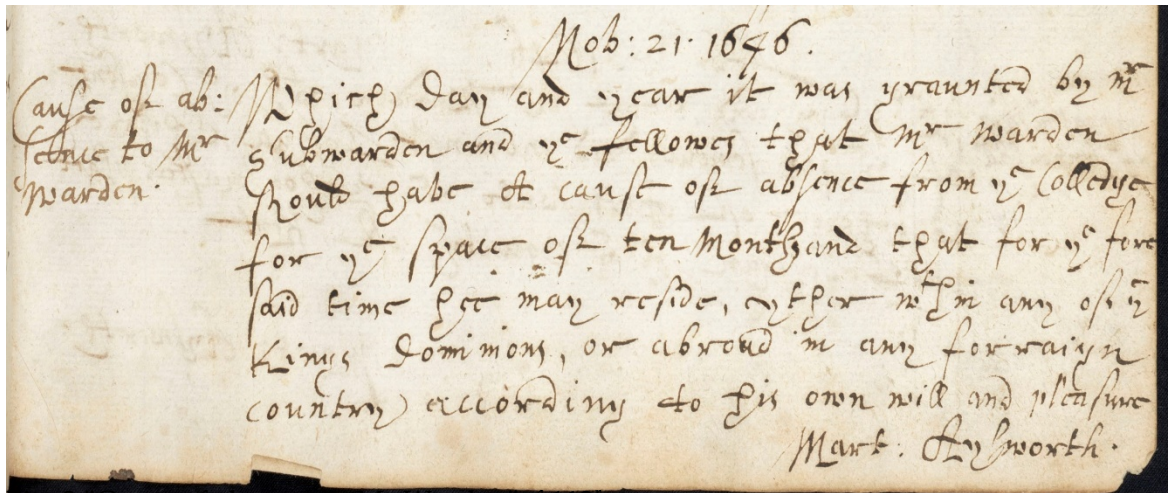 Nov: 21. 1646.
Cause of ab:
sence to Mr
Warden.
Which day and year it was graunted by mr
Subwarden and ye fellowes that Mr Warden
should have A cause of absence from ye Colledge
for ye space of ten Months and that for ye fore
said time hee may reside, eyther wthin any of ye
Kings dominions, or abroad in any forraign
country according to his own will and pleasure
Mart: Aylworth.